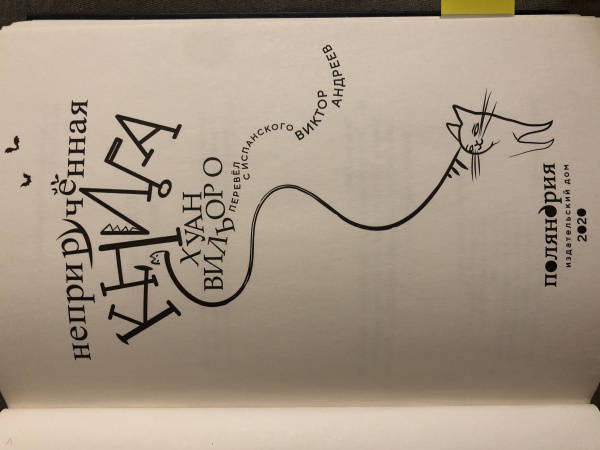 неприручённая
КНИГА
ХУАН
ВИЛЬОРО
ПЕРЕВЁЛ
С ИСПАНСКОГО
ВИКТОР
АНДРЕЕВ
поляндрия
издательский дом
2020